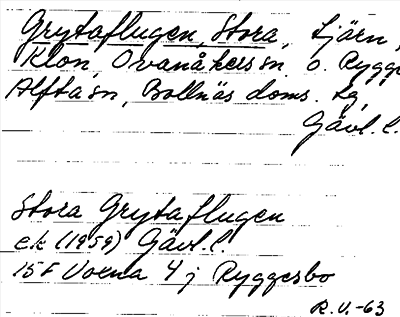 Grytaflugen, Stora, tjärn,
Klon, Ovanåkers sn. o. Rygge
Alfta sn, Bollnäs doms. tg,
Gävl. l.
Stora Grytaflugen
ek (1959) Gävl. l.
15F Voxna 4 j Ryggesbo
R.V.-63